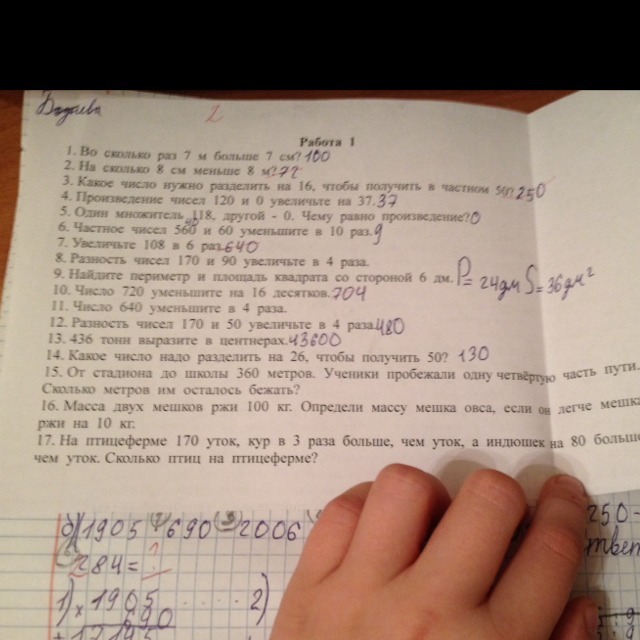 2
Работа 1
1. Во сколько раз 7 м больше 7 см? 100
2. На сколько 8 см меньше 8 м? 72
3. Какое число нужно разделить на 16, чтобы получить в частном 50? 250
4. Произведение чисел 120 и 0 увеличьте на 37. 37
5. Один множитель 118, другой - 0. Чему равно произведение? 0
6. Частное чисел 560 и 60 уменьшите в 10 раз. 9
7. Увеличьте 108 в 6 раз. 640
8. Разность чисел 170 и 90 увеличьте в 4 раза.
9. Найдите периметр и площадь квадрата со стороной 6 дм. P= 24дм S=36дм²
10. Число 720 уменьшите на 16 десятков. 704
11. Число 640 уменьшите в 4 раза.
12. Разность чисел 170 и 50 увеличьте в 4 раза. 480
13. 436 тонн выразите в центнерах. 43600
14. Какое число надо разделить на 26, чтобы получить 50? 130
15. От стадиона до школы 360 метров. Ученики пробежали одну четвёртую часть пути.
Сколько метров им осталось бежать?
16. Масса двух мешков ржи 100 кг. Определи массу мешка овса, если он легче мешка
ржи на 10 кг.
17. На птицеферме 170 уток, кур в 3 раза больше, чем уток, а индюшек на 80 больше
чем уток. Сколько птиц на птицеферме?
б) 1905 690 2006 250-
284=?
1) × 1905 2)